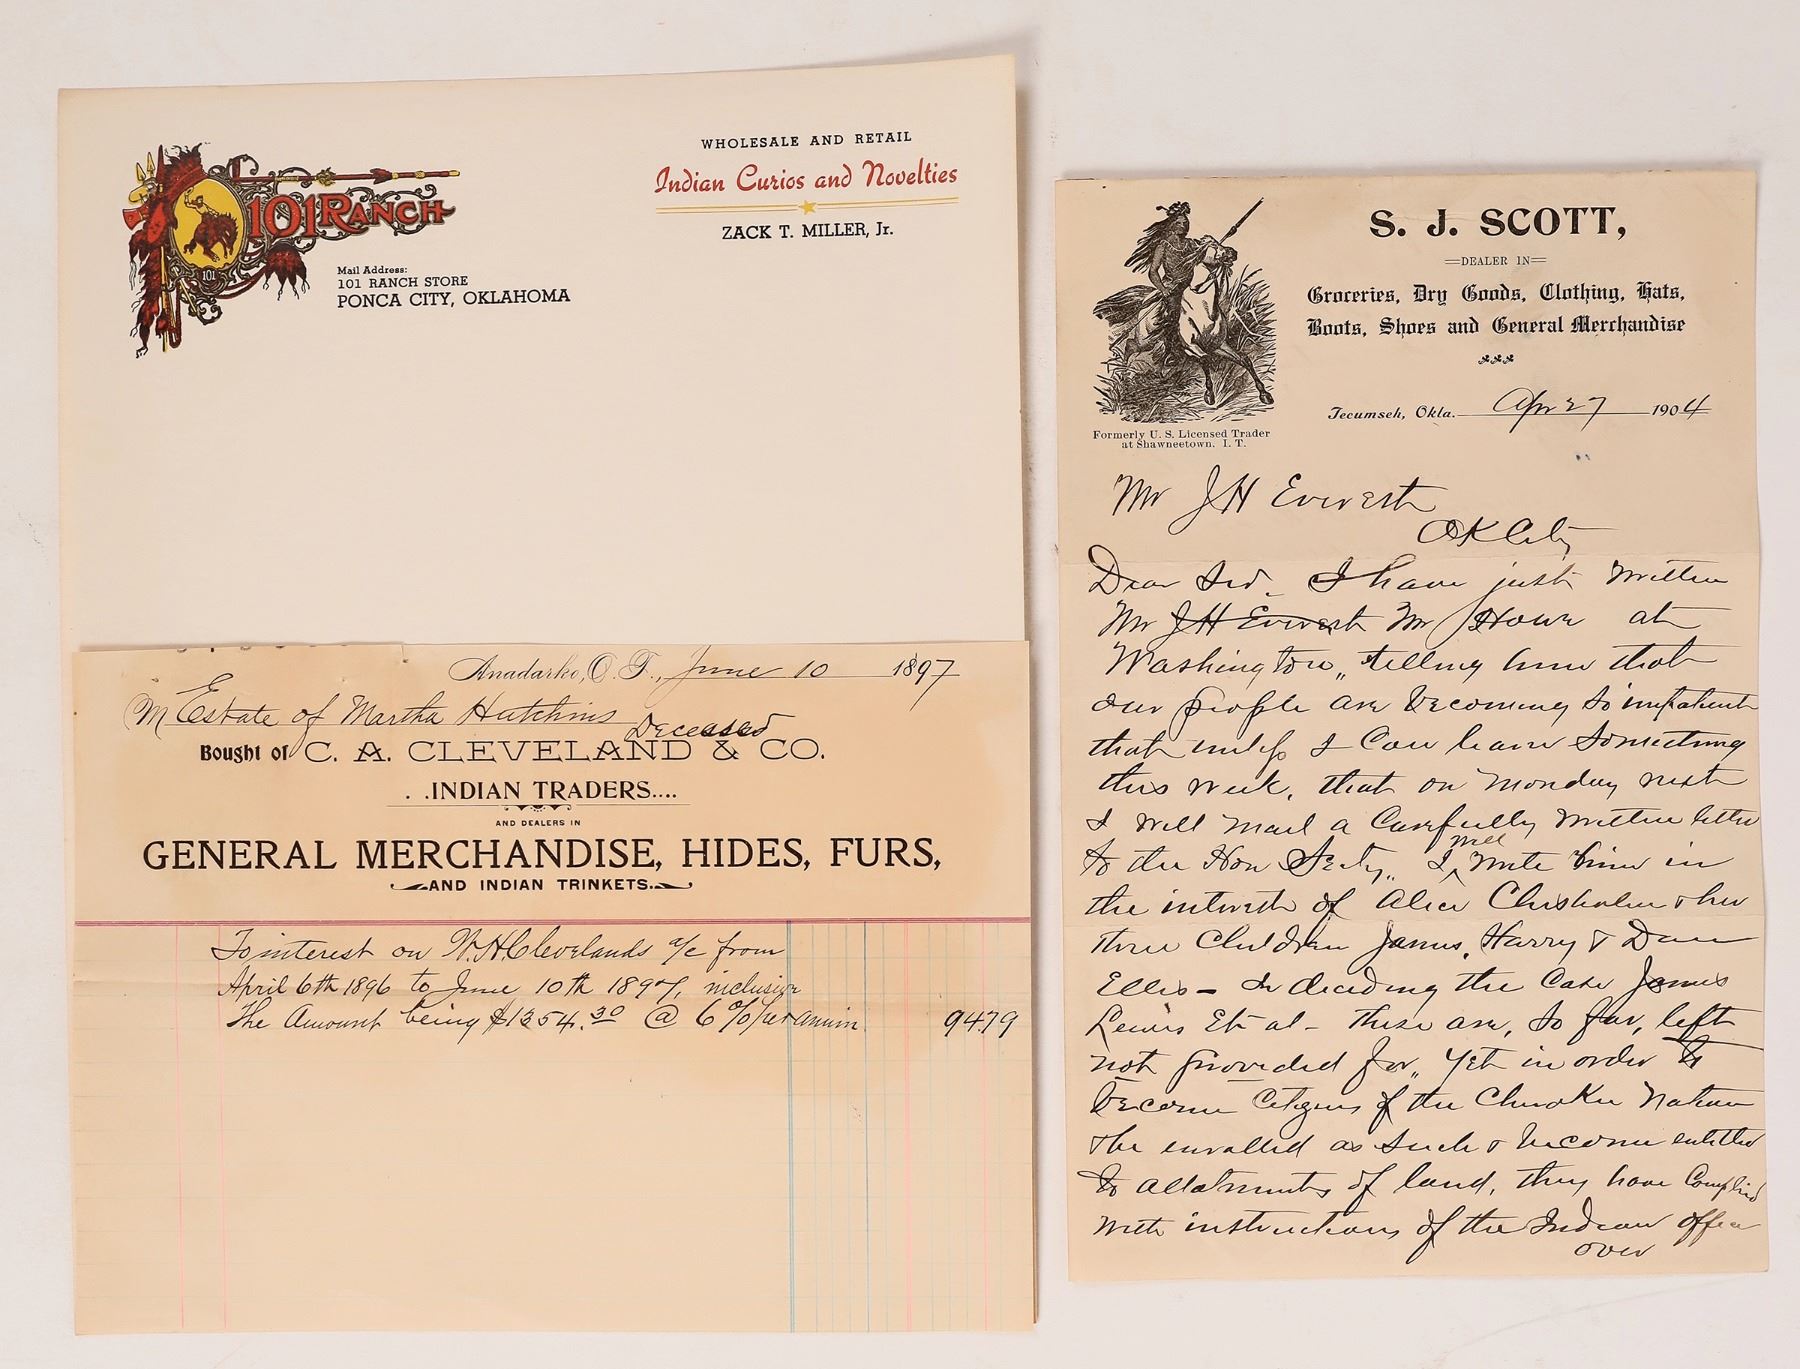 101 RANCH
101
Mail Address:
101 RANCH STORE
PONCA CITY, OKLAHOMA
WHOLESALE AND RETAIL
Indian Curios and Novelties
ZACK T. MILLER, Jr.
Anadarko, O. T., June 10 1897
M Estate of Martha Hutchins Deceased
Bought of C. A. CLEVELAND & CO.
. .INDIAN TRADERS....
AND DEALERS IN
GENERAL MERCHANDISE, HIDES, FURS,
AND INDIAN TRINKETS.
To interest on W. H. Clevelands a/c from
April 6th 1896 to June 10th 1897, inclusive
The Amount being $1354.30 @ 6% per annum 94.79
S. J. SCOTT,
DEALER IN
Groceries, Dry Goods, Clothing, Hats,
Boots, Shoes and General Merchandise
Tecumseh, Okla. Apr 27 1904
Formerly U. S. Licensed Trader
at Shawneetown, I. T.
Mr J H Everest
OK City
Dear Sir. I have just written
Mr J H Everest Mr Howe at
Washington, telling him that
our people are becoming so impatient
that unless I can learn something
this week, that on Monday next
I will mail a carefully written letter
to the Hon Secty,, I will write him in
the interest of Alice Chisholm & her
three children James, Harry & Dave
Ellis - In deciding the case James
Lewis Et al - these are, so far, left
not provided for,, Yet in order to
become Citizens of the Cherokee Nation
& be enrolled as such & become entitled
to allotments of land, they have complied
with instructions of the Indian office
over